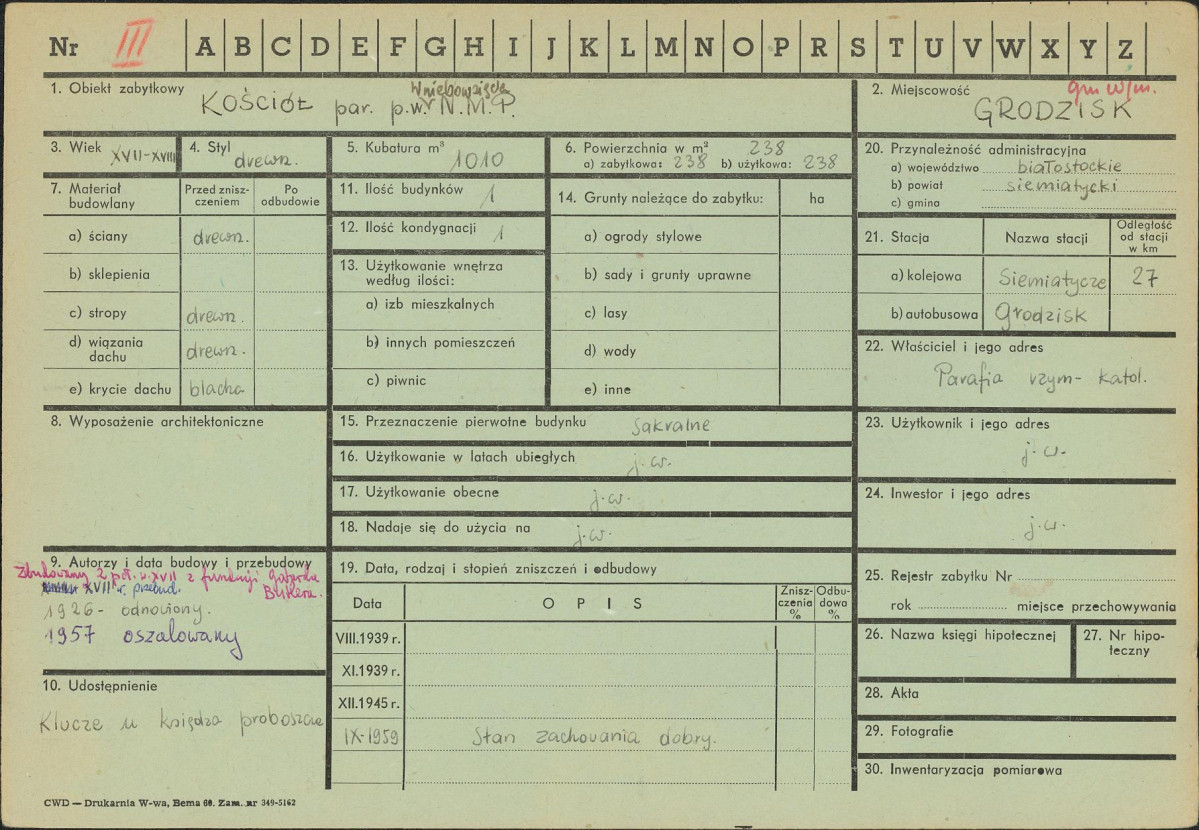 Nr III A B C D E F G H I J K L M N O P R S T U V W X Y Z
1. Obiekt zabytkowy KOŚCIÓŁ par. p.w. Wniebowzięcia N.M.P.
2. Miejscowość gm w/m.
GRODZISK
3. Wiek XVII-XVIII
4. Styl drewn.
5. Kubatura m³ 1010
6. Powierzchnia w m² 238
a) zabytkowa: 238 b) użytkowa: 238
7. Materiał budowlany
Przed zniszczeniem
Po odbudowie
a) ściany drewn.
b) sklepienia
c) stropy drewn.
d) wiązania dachu drewn.
e) krycie dachu blacha
11. Ilość budynków 1
12. Ilość kondygnacji 1
13. Użytkowanie wnętrza
według ilości:
a) izb mieszkalnych
b) innych pomieszczeń
c) piwnic
14. Grunty należące do zabytku: ha
a) ogrody stylowe
b) sady i grunty uprawne
c) lasy
d) wody
e) inne
20. Przynależność administracyjna
a) województwo białostockie
b) powiat siemiatycki
c) gmina
21. Stacja Nazwa stacji Odległość od stacji w km
a) kolejowa Siemiatycze 27
b) autobusowa Grodzisk
22. Właściciel i jego adres
Parafia rzym- katol.
8. Wyposażenie architektoniczne
15. Przeznaczenie pierwotne budynku sakralne
16. Użytkowanie w latach ubiegłych j.w.
17. Użytkowanie obecne j.w.
18. Nadaje się do użycia na j.w.
23. Użytkownik i jego adres
j.w.
24. Inwestor i jego adres
j.w.
9. Autorzy i data budowy i przebudowy
Zbudowany 2 poł. w. XVII z fundacji
XVII r. przebud.
1926 - odnowiony.
1957 oszalowany
10. Udostępnienie
Klucze u księdza proboszcza
19. Data, rodzaj i stopień zniszczeń i odbudowy
Data OPIS Zniszczenia % Odbudowa %
VIII.1939 r.
XI.1939 r.
XII.1945 r.
IX-1959 Stan zachowania dobry.
25. Rejestr zabytku Nr
rok miejsce przechowywania
26. Nazwa księgi hipotecznej
27. Nr hipoteczny
28. Akta
29. Fotografie
30. Inwentaryzacja pomiarowa
CWD — Drukarnia W-wa, Bema 60. Zam. nr 349-5162